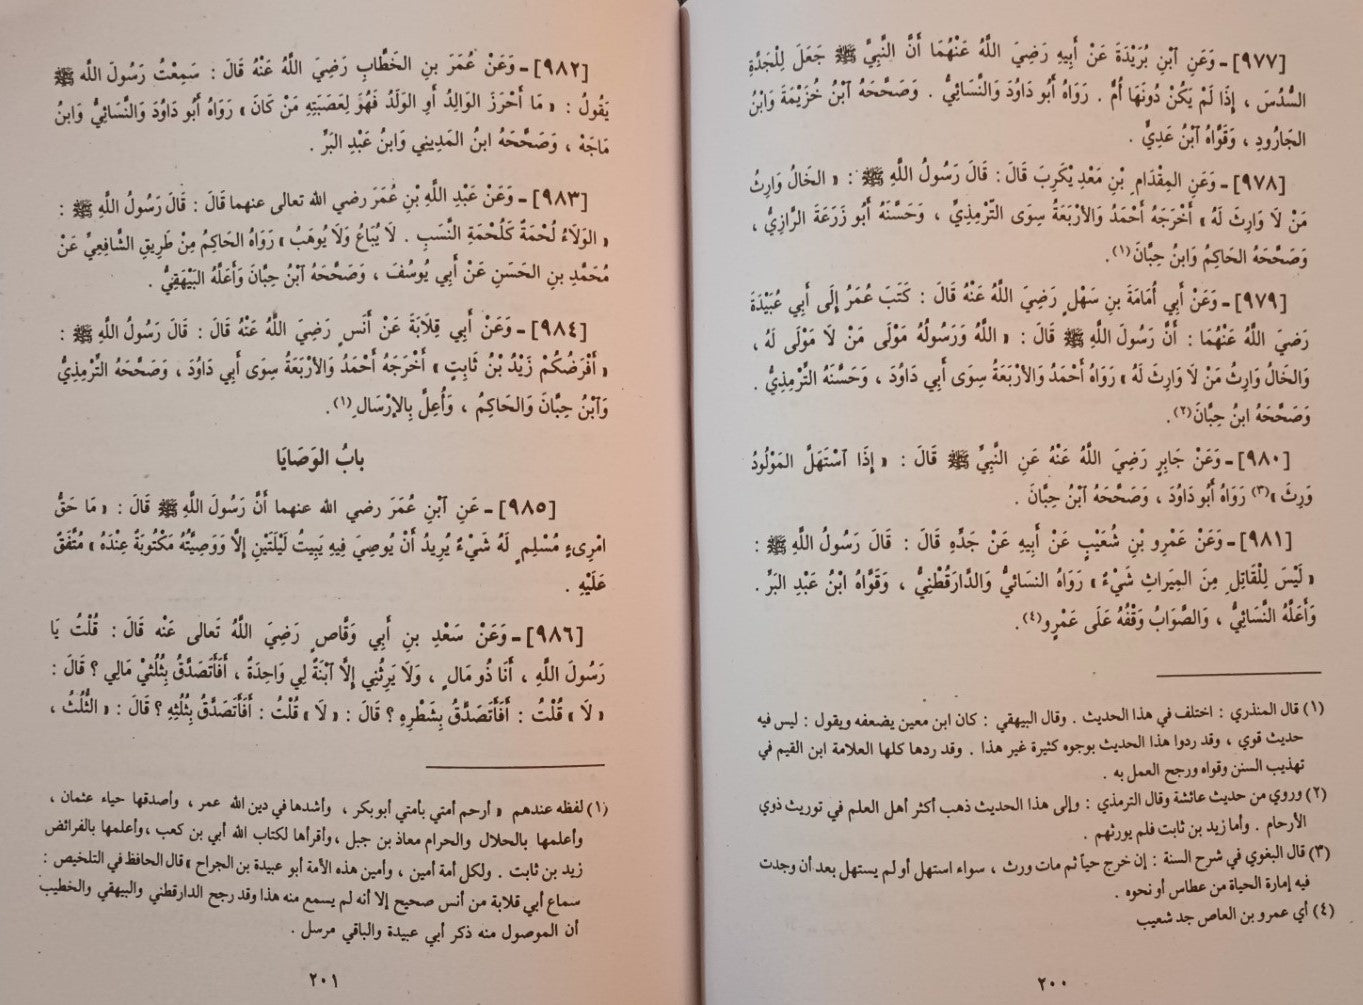 [٩٧٧] - وَعَنِ ٱبْنِ بُرَيْدَةَ عَنْ أَبِيهِ رَضِيَ اللَّهُ عَنْهُمَا أَنَّ النَّبِيَّ ﷺ جَعَلَ لِلْجَدَّةِ
السُّدُسَ ، إِذَا لَمْ يَكُنْ دُونَهَا أُمٌّ . رَوَاهُ أَبُو دَاوُدَ وَالنَّسَائِيُّ . وَصَحَّحَهُ ٱبْنُ خُزَيْمَةَ وَابْنُ
الجَارُودِ ، وَقَوَّاهُ ٱبْنُ عَدِيٍّ .
[٩٧٨] - وَعَنِ المِقْدَامِ بْنِ مَعْدِ يْكَرِبَ قَالَ : قَالَ رَسُولُ اللَّهِ ﷺ : « الخَالُ وَارِثُ
مَنْ لَا وَارِثَ لَهُ » أَخْرَجَهُ أَحْمَدُ وَالأَرْبَعَةُ سِوَى التِّرْمِذِيِّ ، وَحَسَّنَهُ أَبُو زَرَعَةَ الرَّازِيُّ ،
وَصَحَّحَهُ الحَاكِمُ وَابنُ حِبَّانَ(١).
[٩٧٩] - وَعَنْ أَبِي أُمَامَةَ بنِ سَهْلٍ رَضِيَ اللَّهُ عَنْهُ قَالَ : كَتَبَ عُمَرُ إِلَى أَبِي عُبَيْدَةَ
رَضِيَ اللَّهُ عَنْهُمَا : أَنَّ رَسُولَ اللَّهِ ﷺ قَالَ : « اللَّهُ وَرَسُولُهُ مَوْلَى مَنْ لَا مَوْلَى لَهُ ،
وَالخَالُ وَارِثُ مَنْ لَا وَارِثَ لَهُ » رَوَاهُ أَحْمَدُ وَالأَرْبَعَةُ سِوَى أَبِي دَاوُدَ ، وَحَسَّنَهُ التِّرْمِذِيُّ .
وَصَحَّحَهُ ابنُ حِبَّانَ(٢).
[٩٨٠] - وَعَنْ جَابِرٍ رَضِيَ اللَّهُ عَنْهُ عَنِ النَّبِيِّ ﷺ قَالَ : « إِذَا ٱسْتَهَلَّ المَوْلُودُ
وَرِثَ »(٣) رَوَاهُ أَبُو دَاوُدَ ، وَصَحَّحَهُ ٱبْنُ حِبَّانَ .
[٩٨١] - وَعَنْ عَمْرِو بنِ شُعَيْبٍ عَنْ أَبِيهِ عَنْ جَدِّهِ قَالَ : قَالَ رَسُولُ اللَّهِ ﷺ :
« لَيْسَ لِلْقَاتِلِ مِنَ المِيرَاثِ شَيْءٌ » رَوَاهُ النسَائيُّ وَالدَّارَقُطْنِيُّ ، وَقَوَّاهُ ابْنُ عَبْدِ البَرِّ .
وَأَعَلَّهُ النَّسَائِيُّ ، وَالصَّوَابُ وَقْفُهُ عَلَى عَمْرٍو(٤).
(١) قال المنذري : اختلف في هذا الحديث . وقال البيهقي : كان ابن معين يضعفه ويقول : ليس فيه
حديث قوي ، وقد ردوا هذا الحديث بوجوه كثيرة غير هذا . وقد ردها كلها العلامة ابن القيم في
تهذيب السنن وقواه ورجح العمل به .
(٢) وروي من حديث عائشة وقال الترمذي : وإلى هذا الحديث ذهب أكثر أهل العلم في توريث ذوي
الأرحام . وأما زيد بن ثابت فلم يورثهم .
(٣) قال البغوي في شرح السنة : إن خرج حياً ثم مات ورث ، سواء استهل أو لم يستهل بعد أن وجدت
فيه إمارة الحياة من عطاس أو نحوه .
(٤) أي عمرو بن العاص جد شعيب
٢٠٠
[٩٨٢] - وَعَنْ عُمَرَ بنِ الخَطَّابِ رَضِيَ اللَّهُ عَنْهُ قَالَ : سَمِعْتُ رَسُولَ اللَّهِ ﷺ
يَقُولُ : « مَا أَحْرَزَ الوَالِدُ أَوِ الوَلَدُ فَهُوَ لِعَصَبَتِهِ مَنْ كَانَ » رَوَاهُ أَبُو دَاوُدَ وَالنَّسَائِيُّ وَابنُ
مَاجَهْ ، وَصَحَّحَهُ ابنُ المَدِيني وَابنُ عَبْدِ البَرِّ .
[٩٨٣] - وَعَنْ عَبْدِ اللَّهِ بْنِ عُمَرَ رضي الله تعالى عنهما قَالَ : قَالَ رَسُولُ اللَّهِ ﷺ :
« الوَلَاءُ لُحْمَةٌ كَلُحْمَةِ النَّسَبِ . لَا يُبَاعُ وَلَا يُوهَبُ » رَوَاهُ الحَاكِمُ مِنْ طَرِيقِ الشَّافِعِيِّ عَنْ
مُحَمَّدِ بنِ الحَسَنِ عَنْ أَبِي يُوسُفَ ، وَصَحَّحَهُ ٱبْنُ حِبَّانَ وَأَعَلَّهُ البَيْهَقِيُّ .
[٩٨٤] - وَعَنْ أَبِي قِلَابَةَ عَنْ أَنَسٍ رَضِيَ اللَّهُ عَنْهُ قَالَ : قَالَ رَسُولُ اللَّهِ ﷺ :
« أَفْرَضُكُمْ زَيْدُ بْنُ ثَابِتٍ » أَخْرَجَهُ أَحْمَدُ وَالأَرْبَعَةُ سِوَى أَبِي دَاوُدَ ، وَصَحَّحَهُ التِّرْمِذِيُّ
وَٱبْنُ حِبَّانَ وَالحَاكِمُ ، وَأُعِلَّ بِالإِرْسَالِ(١).
بابُ الوَصَايَا
[٩٨٥] - عَنِ ٱبْنِ عُمَرَ رضي الله عنهما أَنَّ رَسُولَ اللَّهِ ﷺ قَالَ : « مَا حَقُّ
امْرِىءٍ مُسْلِمٍ لَهُ شَيْءٌ يُرِيدُ أَنْ يُوصِيَ فِيهِ يَبِيتُ لَيْلَتَيْنِ إِلَّا وَوَصِيَّتُهُ مَكْتُوبَةٌ عِنْدَهُ » مُتَّفَقٌ
عَلَيْهِ .
[٩٨٦] - وَعَنْ سَعْدِ بنِ أَبِي وَقَّاصٍ رَضِيَ اللَّهُ تَعالى عَنْه قَالَ : قُلْتُ يَا
رَسُولَ اللَّهِ ، أَنَا ذُو مَالٍ ، وَلَا يَرِثُنِي إِلَّا ٱبْنَةٌ لِي وَاحِدَةٌ ، أَفَأَتَصَدَّقُ بِثُلُثَيْ مَالِي ؟ قَالَ :
« لَا » قُلْتُ : أَفَأَتَصَدَّقُ بِشَطْرِهِ ؟ قَالَ : « لَا » قُلْتُ : أَفَأَتَصَدَّقُ بِثُلُثِهِ ؟ قَالَ : « الثُّلُثُ ،
(١) لفظه عندهم « أرحم أمتي بأمتي أبو بكر ، وأشدها في دين الله عمر ، وأصدقها حياء عثمان ،
وأعلمها بالحلال والحرام معاذ بن جبل ، وأقرأها لكتاب الله أبي بن كعب ، وأعلمها بالفرائض
زيد بن ثابت . ولكل أمة أمين ، وأمين هذه الأمة أبو عبيدة بن الجراح » قال الحافظ في التلخيص :
سماع أبي قلابة من أنس صحيح إلا أنه لم يسمع منه هذا وقد رجح الدارقطني والبيهقي والخطيب
أن الموصول منه ذكر أبي عبيدة والباقي مرسل .
٢٠١